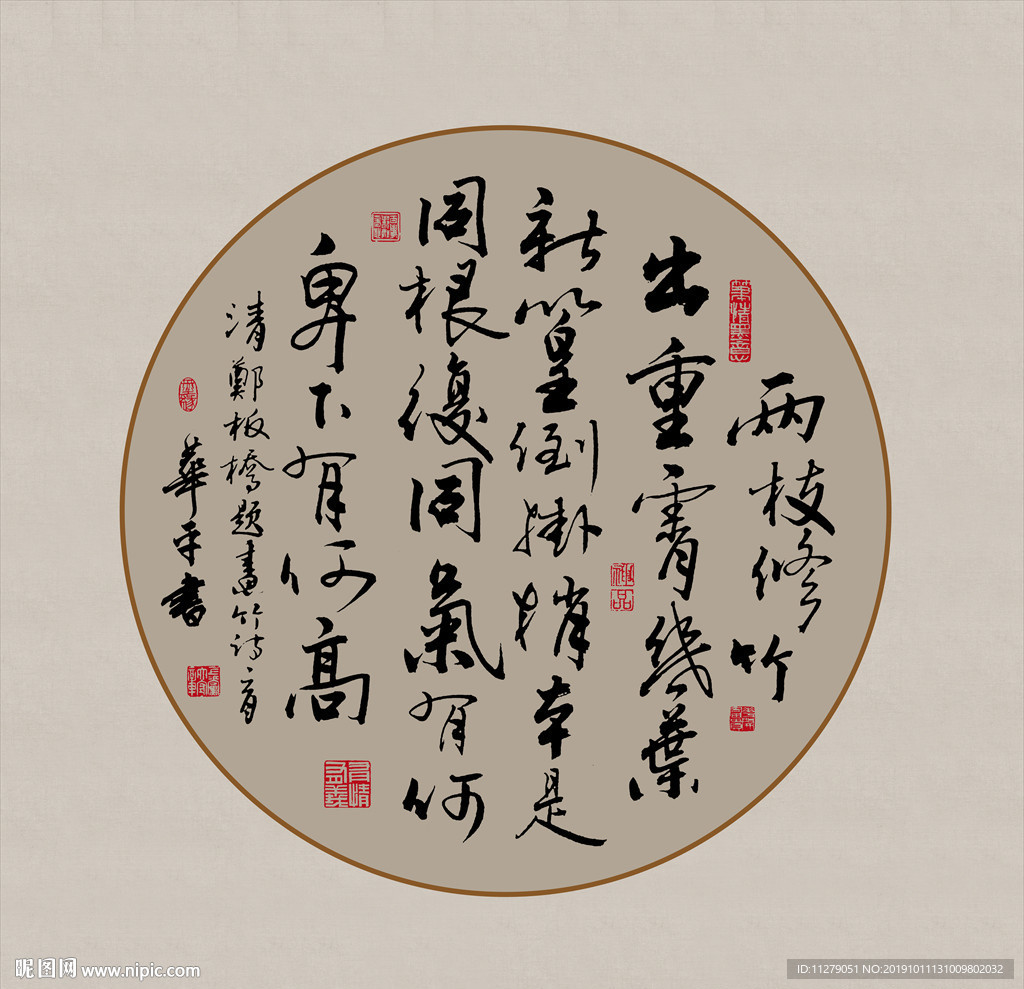 两枝修竹
出重霄幾葉
新篁倒掛梢本是
同根復同氣有何
卑下有何高
清鄭板橋題畫竹詩一首
華平書
雅品
昵图网 www.nipic.com
ID:11279051 NO:20191011131009802032